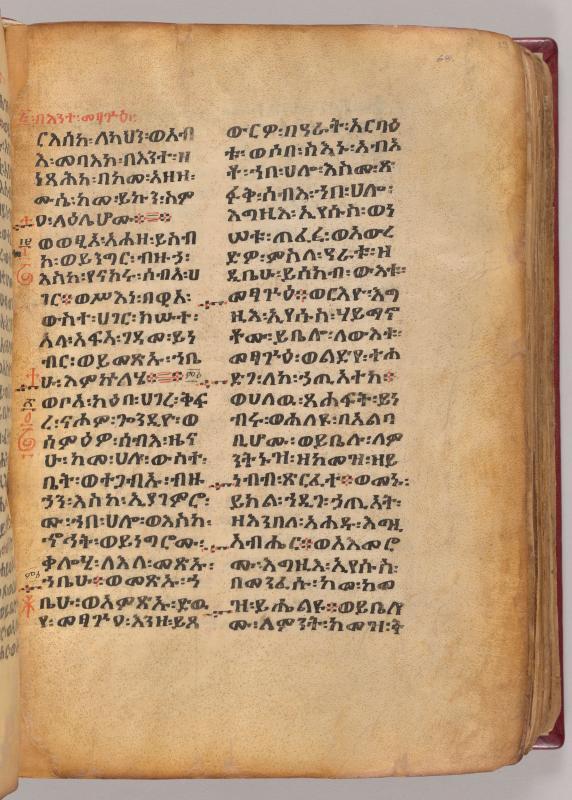 ፭ በእንተ፡መፃጕዕ፡
ርእሰከ፡ለካህን፡ወአብ
እ፡መባአከ፡በእንተ፡ዘ
ነጻሕከ፡በከመ፡አዘዘ፡
ሙሴ፡ከመ፡ይኩን፡ስም
ዐ፡ላዕሌሆሙ።
ወወፂኦ፡አሐዘ፡ይስብ
ክ፡ወይንግር፡ብዙኃ፡
እስከ፡የኀክሩ፡ሰብአ፡ሀ
ገር።ወሥእነ፡በዊአ፡
ውስተ፡ሀገር፡ክሡተ፡
አላ፡አፍአ፡ገዳመ፡ይነ
ብር፡ወይመጽኡ፡ኀቤ
ሁ፡እምኵለሄ።
ወቦአ፡ካዕበ፡ሀገረ፡ቅፍ
ረ፡ናሖም፡ጐንዲዮ፡ወ
ሰምዕዎ፡ሰብእ፡ዜና
ሁ፡ከመ፡ሀሎ፡ውስተ፡
ቤት፡ወተጋብኡ፡ብዙ
ኃን፡እስከ፡ኢያገምሮ
ሙ፡ኀበ፡ሀሎ፡ወእስከ፡
ኆኅት፡ወይነግሮሙ፡
ቃሎሂ፡ለእለ፡መጽኡ፡
ኀቤሁ።ወመጽኡ፡ኀ
ቤሁ፡ወአምጽኡ፡ድዉ
የ፡መፃጕዐ፡እንዘ፡ይጸ
ውርዎ፡በዓራት፡አርባዕ
ቱ፡ወሶበ፡ስእኑ፡አብአ
ቶ፡ኀበ፡ሀሎ፡እስመ፡ጽ
ፉቅ፡ሰብእ፡ኀበ፡ሀሎ፡
እግዚእ፡ኢየሱስ፡ወነ
ሠቱ፡ጠፈረ፡ወአውረ
ድዎ፡ምስለ፡ዓራቱ፡ዘ
ዲቤሁ፡ይሰክብ፡ውእቱ፡
መፃጕዕ።ወርእዮ፡እግ
ዚእ፡ኢየሱስ፡ሃይማኖ
ቶሙ፡ይቤሎ፡ለውእቱ፡
መፃጕዕ፡ወልድየ፡ተኀ
ድገ፡ለከ፡ኃጢአተከ።
ወሀለዉ፡ጸሐፍት፡ይነ
ብሩ፡ወሐለዩ፡በአልባ
ቢሆሙ፡ወይቤሉ፡ለም
ንትኑዝ፡ዘከመዝ፡ዝይ
ነብብ፡ጽርፈተ።ወመኑ፡
ይክል፡ኀዲገ፡ኃጢአት፡
ዘእንበለ፡አሐዱ፡እግዚ
አብሔር።ወአእመሮ
ሙ፡እግዚእ፡ኢየሱስ፡
በመንፈሱ፡ከመ፡ከመ
ዝ፡ይሔልዩ።ወይቤሎ
ሙ፡ለምንት፡ከመዝ፡ት